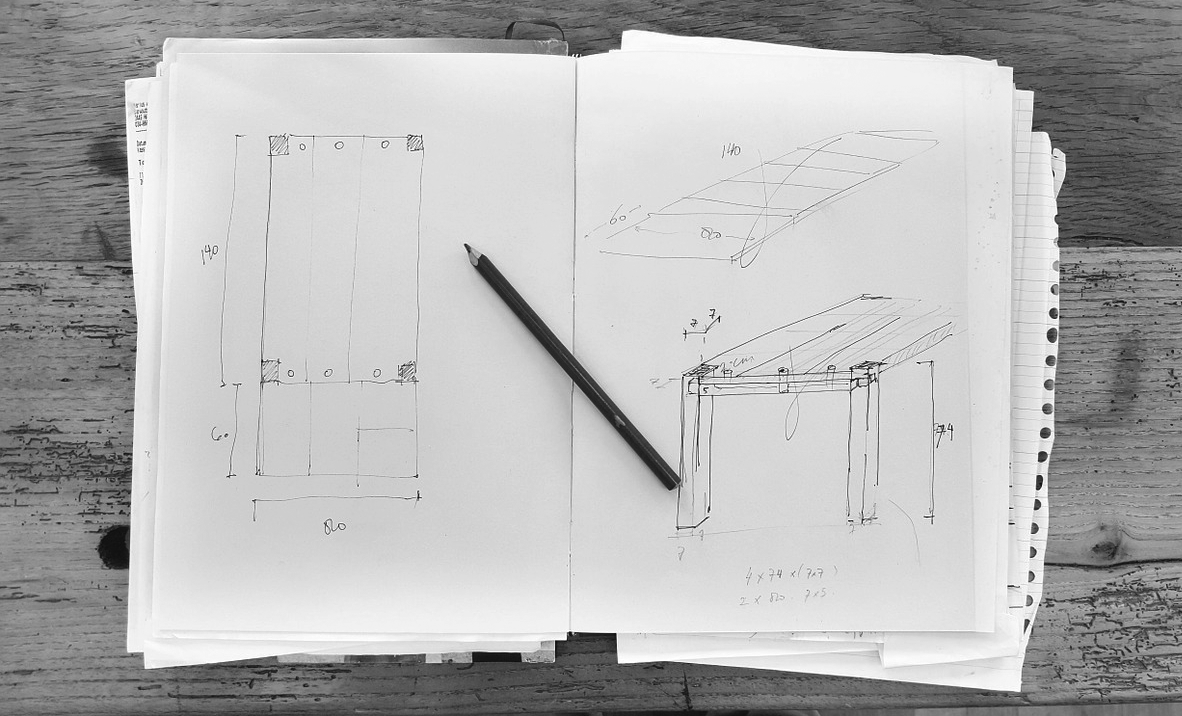 140
60
80
140
60
80
7 7
7 cm
5
74
7 7
7
4 x 74 x (7x7)
2 x 80 . 7x5